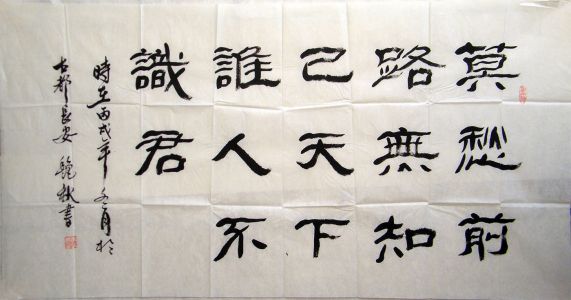 莫愁前
路無知
己天下
誰人不
識君
時在丙戌年冬月於
古都長安 秋書